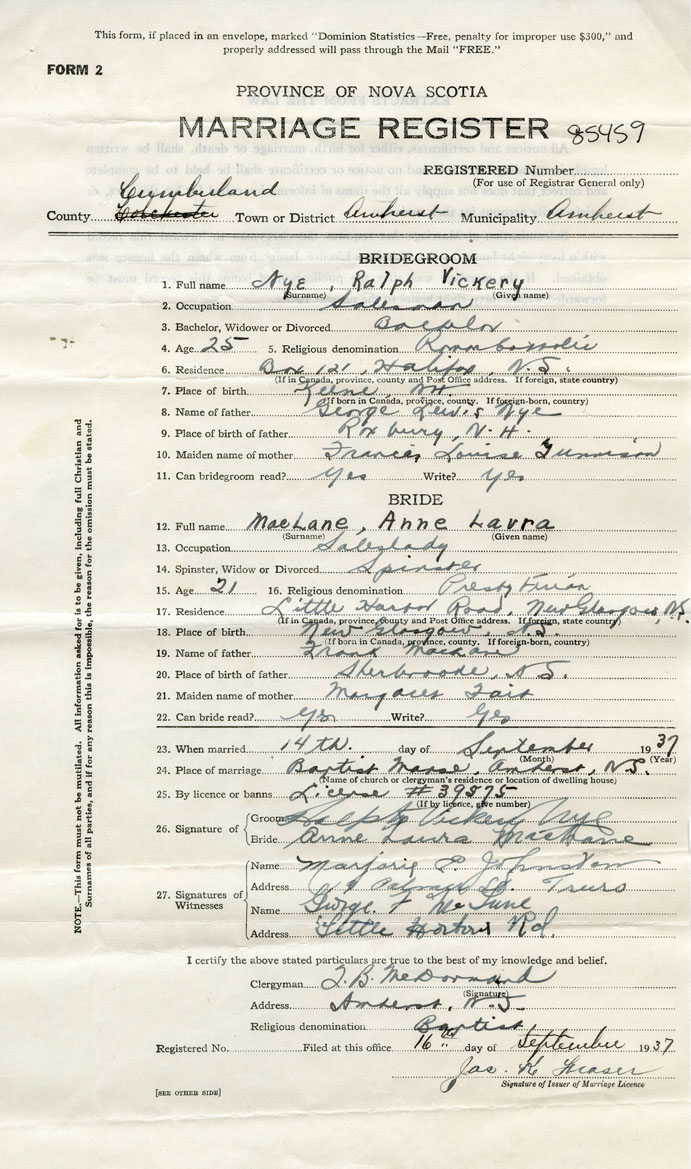 This form, if placed in an envelope, marked "Dominion Statistics—Free, penalty for improper use $300," and
properly addressed will pass through the Mail "FREE."
FORM 2
PROVINCE OF NOVA SCOTIA
MARRIAGE REGISTER 85459
REGISTERED Number
(For use of Registrar General only)
Cumberland
County Town or District Amherst Municipality Amherst
BRIDEGROOM
1. Full name Nye, Ralph Vickery
(Surname) (Given name)
2. Occupation Salesman
3. Bachelor, Widower or Divorced Bachelor
4. Age 25 5. Religious denomination
6. Residence Box 121, Halifax, N.S.
(If in Canada, province, county and Post Office address. If foreign, state country)
7. Place of birth Keene, N.H.
(If born in Canada, province, county. If foreign-born, country)
8. Name of father George Lewis Nye
9. Place of birth of father Roxbury, N.H.
10. Maiden name of mother Frances Louise Gunnison
11. Can bridegroom read? Yes Write? Yes
BRIDE
12. Full name MacLane, Anne Laura
(Surname) (Given name)
13. Occupation Saleslady
14. Spinster, Widow or Divorced Spinster
15. Age 21 16. Religious denomination Presbyterian
17. Residence Little Harbor Road, New Glasgow, N.S.
(If in Canada, province, county and Post Office address. If foreign, state country)
18. Place of birth New Glasgow, N.S.
(If born in Canada, province, county. If foreign-born, country)
19. Name of father Frank MacLane
20. Place of birth of father Sherbrooke, N.S.
21. Maiden name of mother Margaret
22. Can bride read? Yes Write? Yes
23. When married 14th. day of September 1937
(Month) (Year)
24. Place of marriage Baptist Manse, Amherst, N.S.
(Name of church or clergyman's residence or location of dwelling house)
25. By licence or banns License # 39875
(If by licence, give number)
26. Signature of Groom Ralph Vickery Nye
Bride Anne Laura MacLane
27. Signatures of Witnesses
Name Marjorie E. Johnston
Address Palmer St. Truro
Name George F.
Address Little Harbour Rd.
I certify the above stated particulars are true to the best of my knowledge and belief.
Clergyman McDormand
(Signature)
Address Amherst, N.S.
Religious denomination Baptist
Registered No. Filed at this office 16th day of September 1937
Jas. K Fraser
Signature of Issuer of Marriage Licence
[SEE OTHER SIDE]
NOTE.—This form must not be mutilated. All information asked for is to be given, including full Christian and
Surnames of all parties, and if for any reason this is impossible, the reason for the omission must be stated.